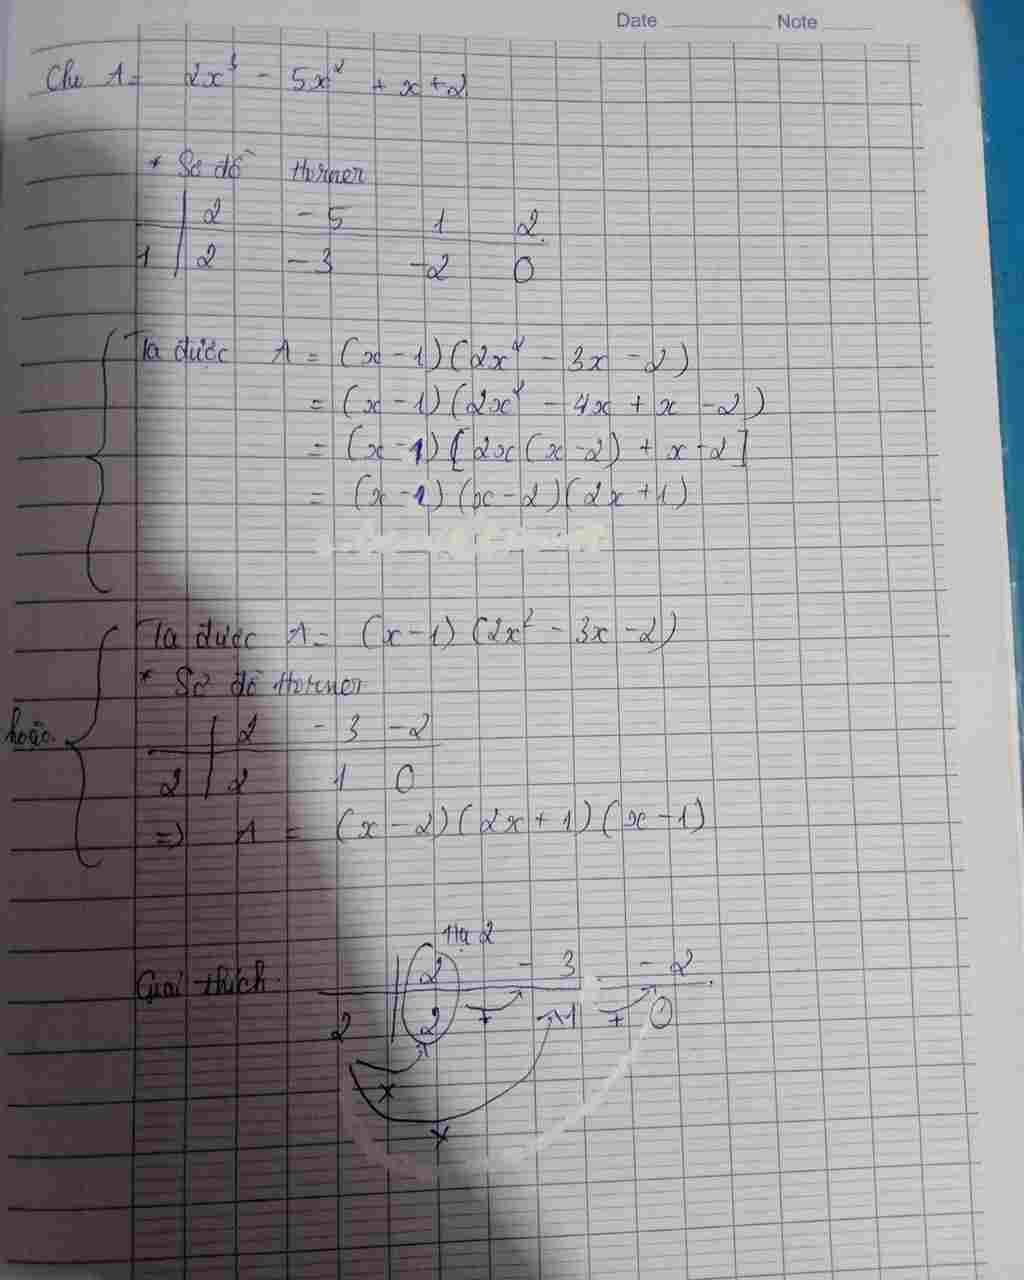 Date Note
Cho A = 2x³ - 5x² + x + 2
* Sơ đồ Horner
2 - 5 1 2
1 2 - 3 -2 0
Ta được A = (x - 1)(2x² - 3x - 2)
= (x - 1)(2x² - 4x + x - 2)
= (x - 1)[2x(x - 2) + x - 2]
= (x - 1)(x - 2)(2x + 1)
Ta được A = (x - 1)(2x² - 3x - 2)
* Sơ đồ Horner
hoặc
2 - 3 -2
2 2 1 0
=> A = (x - 2)(2x + 1)(x - 1)
Hạ 2
Giải thích. 2 - 3 - 2
2 2 + 1 + 0
x
x